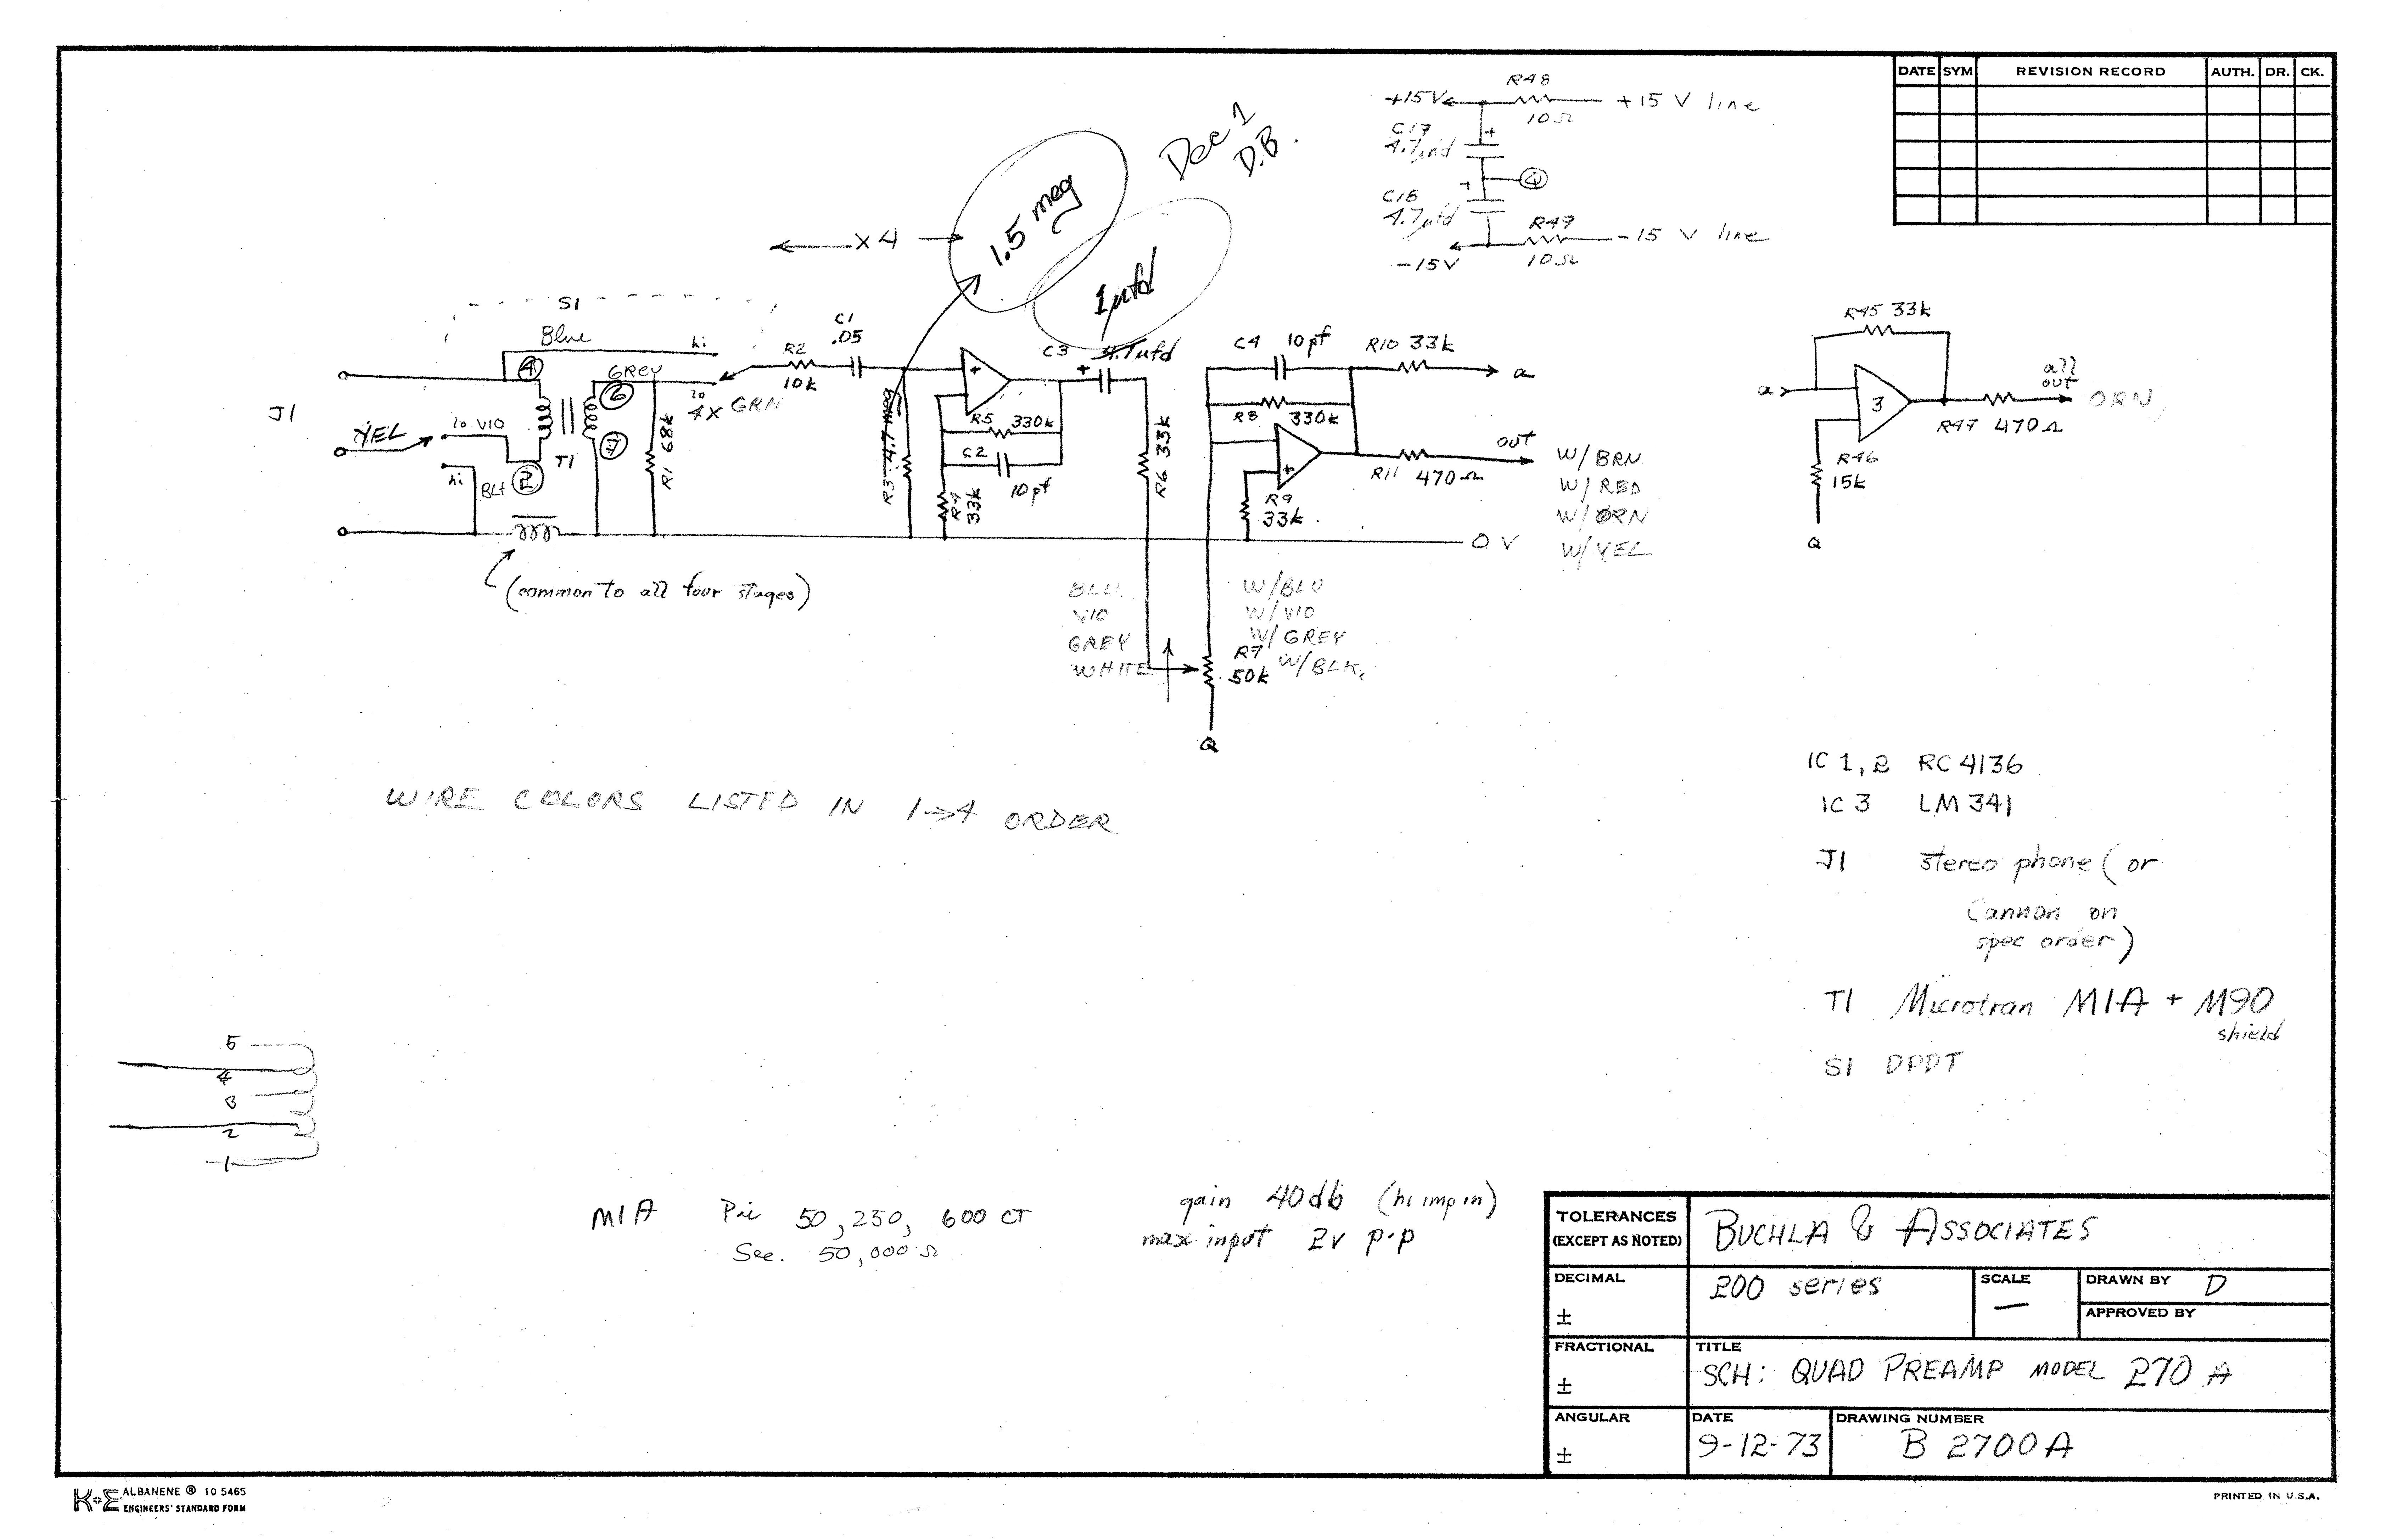 DATE SYM REVISION RECORD AUTH. DR. CK.
R48
+15V +15 V line
10Ω
C17
4.7µfd
+
Q
+
C18
4.7µfd
R49
-15V -15 V line
10Ω
Dec 1
D.B.
1.5 meg
1µfd
X4
S1
Blue
hi
4
GREY
6
20
4X GRN
J1
YEL
20 VIO
T1
7
hi
BLK
2
R1 68k
R2
10k
C1
.05
R3
+
R5 330k
C2
10pf
R4
33k
C3
+ 4.7µfd
R6 33k
C4 10pf
R8 330k
+
R9
33k
R10 33k
a
out
R11 470Ω
W/BRN
W/RED
W/ORN
W/YEL
0 V
(common to all four stages)
BLU
VIO
GREY
WHITE
W/BLU
W/VIO
W/GREY
W/BLK
R7
50k
Q
R45 33k
a
3
all
out
ORN
R47 470Ω
R46
15k
Q
WIRE COLORS LISTED IN 1→4 ORDER
IC 1, 2 RC 4136
IC 3 LM 341
J1 stereo phone (or
Cannon on
spec order)
T1 Microtran M1A + M90
shield
S1 DPDT
5
4
3
2
1
M1A Pri 50, 250, 600 CT
Sec. 50,000 Ω
gain 40db (hi imp in)
max input 2v p-p
TOLERANCES
(EXCEPT AS NOTED)
BUCHLA & ASSOCIATES
DECIMAL
±
200 series
SCALE
—
DRAWN BY D
APPROVED BY
FRACTIONAL
±
TITLE
SCH: QUAD PREAMP MODEL 270 A
ANGULAR
±
DATE
9-12-73
DRAWING NUMBER
B 2700A
K+E ALBANENE ® 10 5465
ENGINEERS' STANDARD FORM
PRINTED IN U.S.A.